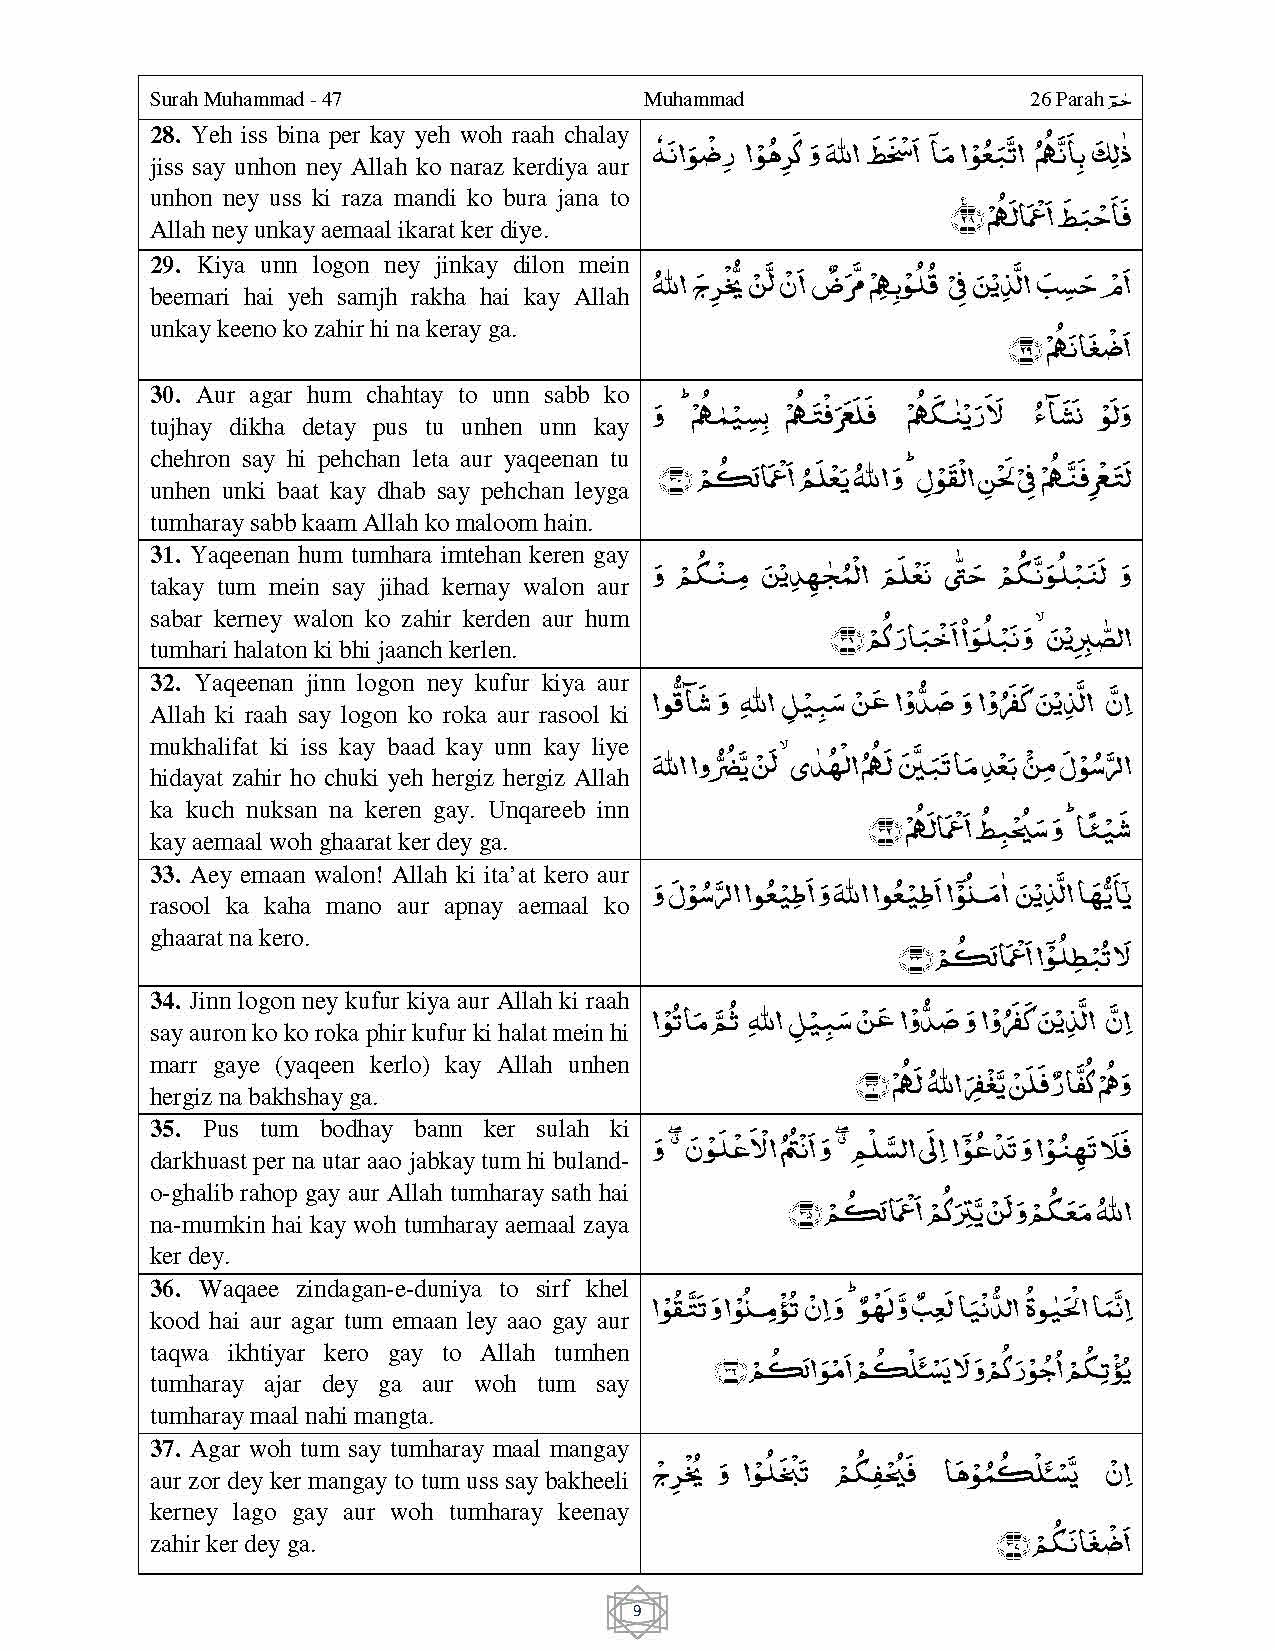 Surah Muhammad - 47 Muhammad 26 Parah حٰمٓ
28. Yeh iss bina per kay yeh woh raah chalay
jiss say unhon ney Allah ko naraz kerdiya aur
unhon ney uss ki raza mandi ko bura jana to
Allah ney unkay aemaal ikarat ker diye.
ذٰلِكَ بِاَنَّهُمُ اتَّبَعُوْا مَاۤ اَسْخَطَ اللّٰهَ وَ كَرِهُوْا رِضْوَانَهٗ
فَاَحْبَطَ اَعْمَالَهُمْ ﴿۲۸﴾
29. Kiya unn logon ney jinkay dilon mein
beemari hai yeh samjh rakha hai kay Allah
unkay keeno ko zahir hi na keray ga.
اَمْ حَسِبَ الَّذِيْنَ فِيْ قُلُوْبِهِمْ مَّرَضٌ اَنْ لَّنْ يُّخْرِجَ اللّٰهُ
اَضْغَانَهُمْ ﴿۲۹﴾
30. Aur agar hum chahtay to unn sabb ko
tujhay dikha detay pus tu unhen unn kay
chehron say hi pehchan leta aur yaqeenan tu
unhen unki baat kay dhab say pehchan leyga
tumharay sabb kaam Allah ko maloom hain.
وَلَوْ نَشَآءُ لَاَرَيْنٰكَهُمْ فَلَعَرَفْتَهُمْ بِسِيْمٰهُمْ ؕ وَ
لَتَعْرِفَنَّهُمْ فِيْ لَحْنِ الْقَوْلِ ؕ وَ اللّٰهُ يَعْلَمُ اَعْمَالَكُمْ ﴿۳۰﴾
31. Yaqeenan hum tumhara imtehan keren gay
takay tum mein say jihad kernay walon aur
sabar kerney walon ko zahir kerden aur hum
tumhari halaton ki bhi jaanch kerlen.
وَ لَنَبْلُوَنَّكُمْ حَتّٰى نَعْلَمَ الْمُجٰهِدِيْنَ مِنْكُمْ وَ
الصّٰبِرِيْنَ ۙ وَ نَبْلُوَا۠ اَخْبَارَكُمْ ﴿۳۱﴾
32. Yaqeenan jinn logon ney kufur kiya aur
Allah ki raah say logon ko roka aur rasool ki
mukhalifat ki iss kay baad kay unn kay liye
hidayat zahir ho chuki yeh hergiz hergiz Allah
ka kuch nuksan na keren gay. Unqareeb inn
kay aemaal woh ghaarat ker dey ga.
اِنَّ الَّذِيْنَ كَفَرُوْا وَ صَدُّوْا عَنْ سَبِيْلِ اللّٰهِ وَ شَآقُّوا
الرَّسُوْلَ مِنْۢ بَعْدِ مَا تَبَيَّنَ لَهُمُ الْهُدٰى ۙ لَنْ يَّضُرُّوا اللّٰهَ
شَيْـًٔا ؕ وَ سَيُحْبِطُ اَعْمَالَهُمْ ﴿۳۲﴾
33. Aey emaan walon! Allah ki ita’at kero aur
rasool ka kaha mano aur apnay aemaal ko
ghaarat na kero.
يٰۤاَيُّهَا الَّذِيْنَ اٰمَنُوْۤا اَطِيْعُوا اللّٰهَ وَ اَطِيْعُوا الرَّسُوْلَ وَ
لَا تُبْطِلُوْۤا اَعْمَالَكُمْ ﴿۳۳﴾
34. Jinn logon ney kufur kiya aur Allah ki raah
say auron ko ko roka phir kufur ki halat mein hi
marr gaye (yaqeen kerlo) kay Allah unhen
hergiz na bakhshay ga.
اِنَّ الَّذِيْنَ كَفَرُوْا وَ صَدُّوْا عَنْ سَبِيْلِ اللّٰهِ ثُمَّ مَاتُوْا
وَهُمْ كُفَّارٌ فَلَنْ يَّغْفِرَ اللّٰهُ لَهُمْ ﴿۳۴﴾
35. Pus tum bodhay bann ker sulah ki
darkhuast per na utar aao jabkay tum hi buland-
o-ghalib rahop gay aur Allah tumharay sath hai
na-mumkin hai kay woh tumharay aemaal zaya
ker dey.
فَلَا تَهِنُوْا وَ تَدْعُوْۤا اِلَى السَّلْمِ ۖۗ وَ اَنْتُمُ الْاَعْلَوْنَ ۖۗ وَ
اللّٰهُ مَعَكُمْ وَ لَنْ يَّتِرَكُمْ اَعْمَالَكُمْ ﴿۳۵﴾
36. Waqaee zindagan-e-duniya to sirf khel
kood hai aur agar tum emaan ley aao gay aur
taqwa ikhtiyar kero gay to Allah tumhen
tumharay ajar dey ga aur woh tum say
tumharay maal nahi mangta.
اِنَّمَا الْحَيٰوةُ الدُّنْيَا لَعِبٌ وَّ لَهْوٌ ؕ وَ اِنْ تُؤْمِنُوْا وَ تَتَّقُوْا
يُؤْتِكُمْ اُجُوْرَكُمْ وَ لَا يَسْـَٔلْكُمْ اَمْوَالَكُمْ ﴿۳۶﴾
37. Agar woh tum say tumharay maal mangay
aur zor dey ker mangay to tum uss say bakheeli
kerney lago gay aur woh tumharay keenay
zahir ker dey ga.
اِنْ يَّسْـَٔلْكُمُوْهَا فَيُحْفِكُمْ تَبْخَلُوْا وَ يُخْرِجْ
اَضْغَانَكُمْ ﴿۳۷﴾
9